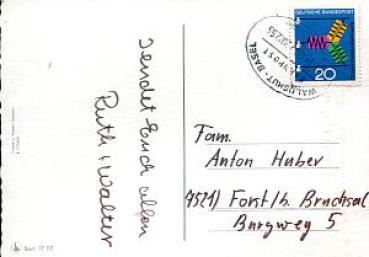 sendet Euch allen
Ruth + Walter
DEUTSCHE BUNDESPOST
20
WALDSHUT - BASEL
Fam.
Anton Huber
7521) Forst/b. Bruchsal
Burgweg 5